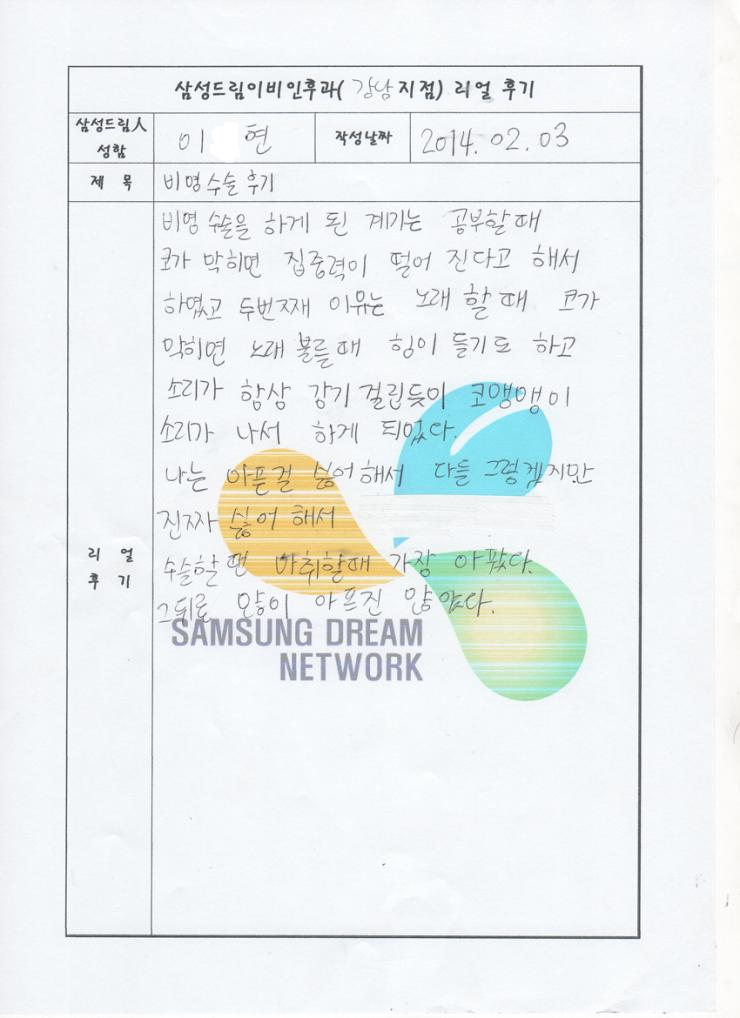 삼성드림이비인후과(강남지점) 리얼 후기
삼성드림人 성함
이 현
작성날짜
2014. 02. 03
제 목
비염수술 후기
리 얼 후 기
비염 수술을 하게 된 계기는 공부할때
코가 막히면 집중력이 떨어 진다고 해서
하였고 두번째 이유는 노래 할때 코가
막히면 노래 부를때 힘이 들기도 하고
소리가 항상 감기 걸린듯이 코맹맹이
소리가 나서 하게 되었다.
나는 아픈걸 싫어해서 다들 그렇겠지만
진짜 싫어 해서
수술할땐 마취할때 가장 아팠다.
그뒤로 많이 아프진 않았다.
SAMSUNG DREAM
NETWORK